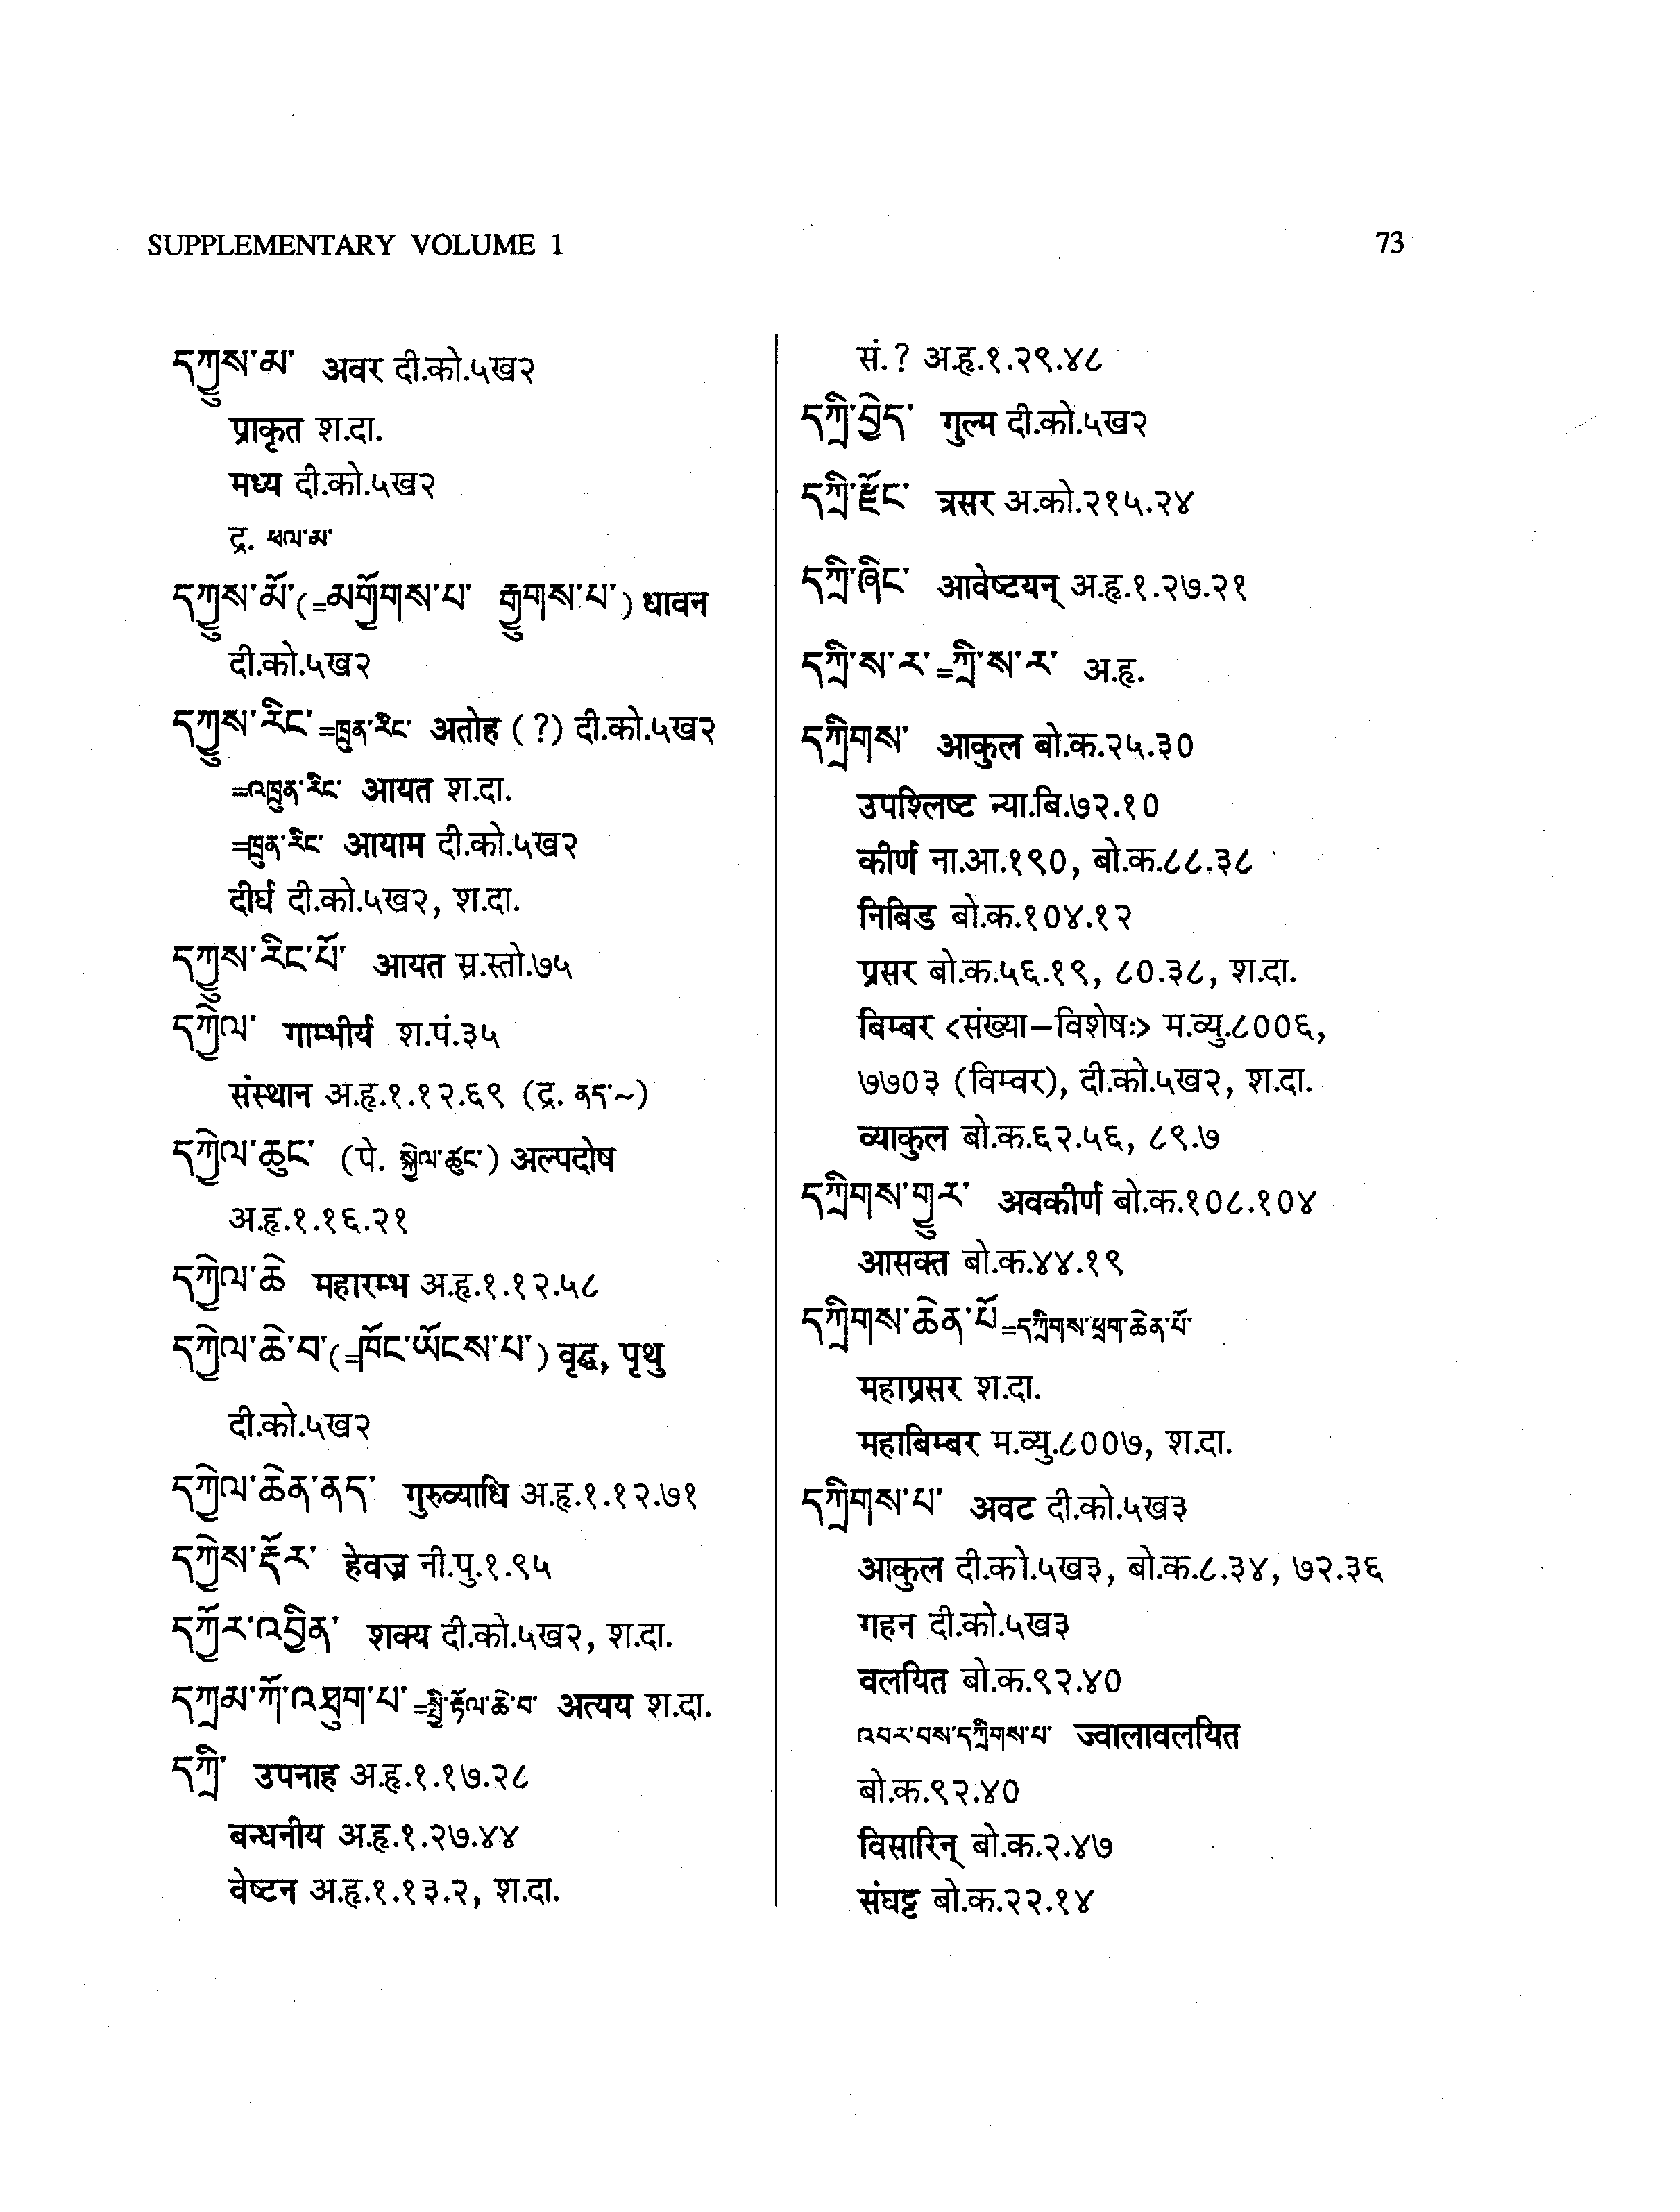 SUPPLEMENTARY VOLUME 1 73
དཀྱུས་མ་ अवर दी.को.५ख२
प्राकृत श.दा.
मध्य दी.को.५ख२
द्र. ཕལ་མ་
དཀྱུས་མོ་(=མགྱོགས་པ་ རྒྱུགས་པ་) धावन
दी.को.५ख२
དཀྱུས་རིང་=ཁྲུན་རིང་ अतोह (?) दी.को.५ख२
=འཁྲུན་རིང་ आयत श.दा.
=ཁྲུན་རིང་ आयाम दी.को.५ख२
दीर्घ दी.को.५ख२, श.दा.
དཀྱུས་རིང་པོ་ आयत स्र.स्तो.७५
དཀྱེལ་ गाम्भीर्य श.पं.३५
संस्थान अ.हृ.१.१२.६९ (द्र. ནད་~)
དཀྱེལ་ཆུང་ (पे. སྐྱེལ་ཚུང་) अल्पदोष
अ.हृ.१.१६.२१
དཀྱེལ་ཆེ महारम्भ अ.हृ.१.१२.५८
དཀྱེལ་ཆེ་བ་(=ཁོང་ཡོངས་པ་) वृद्ध, पृथु
दी.को.५ख२
དཀྱེལ་ཆེན་ནད་ गुरुव्याधि अ.हृ.१.१२.७१
དཀྱེས་རྡོར་ हेवज्र नी.पु.१.९५
དཀྱོར་འབྱིན་ शक्य दी.को.५ख२, श.दा.
དཀྲམ་ཀོ་འཐུག་པ་=སྤྱི་རྟོལ་ཆེ་བ་ अत्यय श.दा.
དཀྲི་ उपनाह अ.हृ.१.१७.२८
बन्धनीय अ.हृ.१.२७.४४
वेष्टन अ.हृ.१.१३.२, श.दा.
सं.? अ.हृ.१.२९.४८
དཀྲི་བྱེད་ गुल्म दी.को.५ख२
དཀྲི་རྫོང་ त्रसर अ.को.२१५.२४
དཀྲི་ཞིང་ आवेष्टयन् अ.हृ.१.२७.२१
དཀྲི་ས་ར་=ཀྲི་ས་ར་ अ.हृ.
དཀྲིགས་ आकुल बो.क.२५.३०
उपश्लिष्ट न्या.बि.७२.१०
कीर्ण ना.आ.१९०, बो.क.८८.३८
निबिड बो.क.१०४.१२
प्रसर बो.क.५६.१९, ८०.३८, श.दा.
बिम्बर <संख्या-विशेषः> म.व्यु.८००६,
७७०३ (विम्वर), दी.को.५ख२, श.दा.
व्याकुल बो.क.६२.५६, ८९.७
དཀྲིགས་གྱུར་ अवकीर्ण बो.क.१०८.१०४
आसक्त बो.क.४४.१९
དཀྲིགས་ཆེན་པོ=དཀྲིགས་ཕྲག་ཆེན་པོ་
महाप्रसर श.दा.
महाबिम्बर म.व्यु.८००७, श.दा.
དཀྲིགས་པ་ अवट दी.को.५ख३
आकुल दी.को.५ख३, बो.क.८.३४, ७२.३६
गहन दी.को.५ख३
वलयित बो.क.९२.४०
འབར་བས་དཀྲིགས་པ་ ज्वालावलयित
बो.क.९२.४०
विसारिन् बो.क.२.४७
संघट्ट बो.क.२२.१४